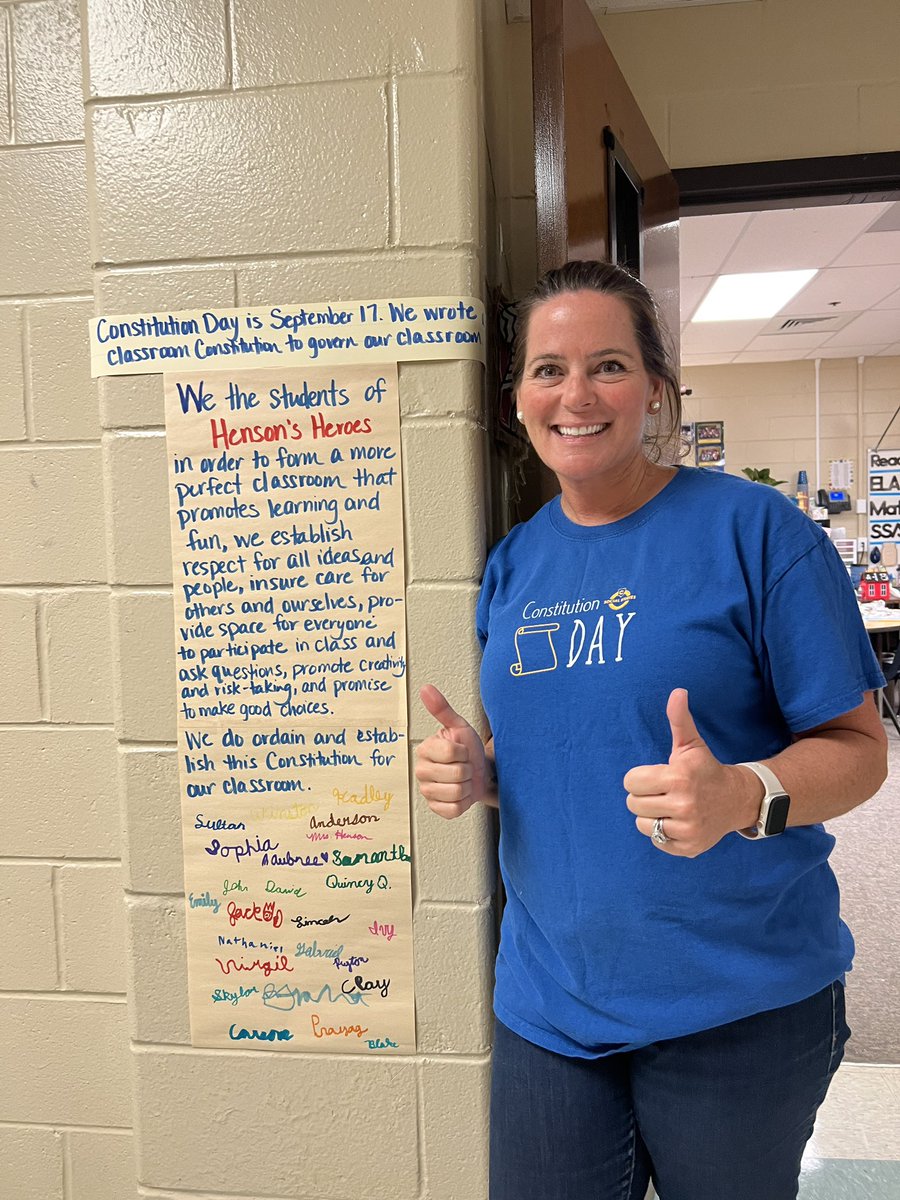 Constitution Day is September 17. We wrote
classroom Constitution to govern our classroom
We the students of
Henson's Heroes
in order to form a more
perfect classroom that
promotes learning and
fun, we establish
respect for all ideas and
people, insure care for
others and ourselves, pro-
vide space for everyone
to participate in class and
ask questions, promote creativity
and risk-taking, and promise
to make good choices.
We do ordain and estab-
lish this Constitution for
our classroom.
Sultan
Anderson
Mrs. Henson
Sophia
Aaubree
Samantha
John David
Quincy Q.
Emily
Jack
Ivy
Nathaniel
Gabriel
Virgil
Peyton
Skylar
Clay
Blake
Constitution
DAY
ELA